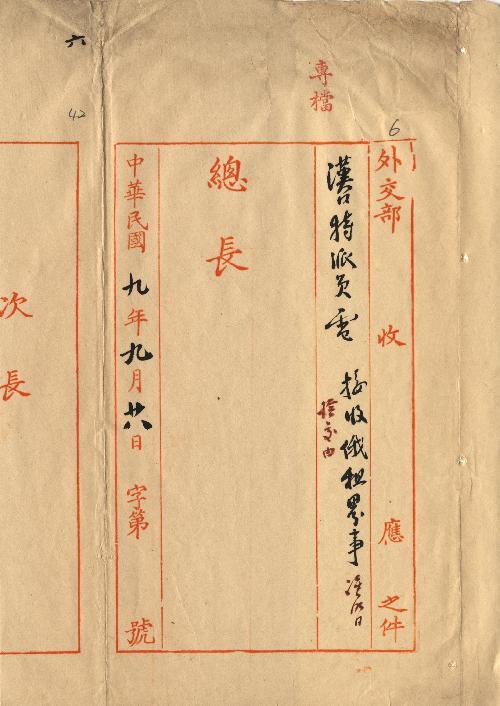 專檔
6
外交部收應之件
漢口特派員電 接收俄租界事
總長
中華民國九年九月廿八日 字第 號
六
42
次長